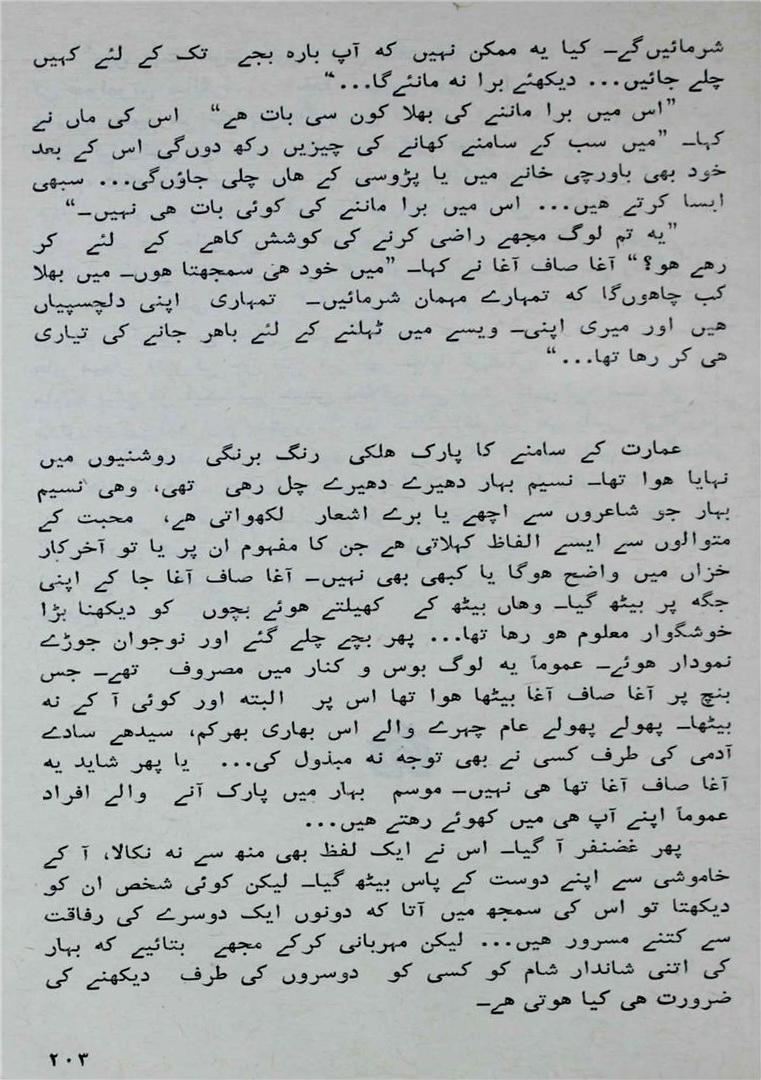 شرمائیں گے۔ کیا یه ممکن نہیں که آپ بارہ بجے تک کے لئے کہیں
چلے جائیں... دیکھئے برا نه مانئے گا...“
”اس میں برا ماننے کی بھلا کون سی بات ھے“ اس کی ماں نے
کہا۔ ”میں سب کے سامنے کھانے کی چیزیں رکھ دوں گی اس کے بعد
خود بھی باورچی خانے میں یا پڑوسی کے ھاں چلی جاؤں گی... سبھی
ایسا کرتے ھیں... اس میں برا ماننے کی کوئی بات ھی نہیں۔“
”یه تم لوگ مجھے راضی کرنے کی کوشش کاھے کے لئے کر
رھے ھو؟“ آغا صاف آغا نے کہا۔ ”میں خود ھی سمجھتا ھوں۔ میں بھلا
کب چاھوں گا که تمہارے مہمان شرمائیں۔ تمہاری اپنی دلچسپیاں
ھیں اور میری اپنی۔ ویسے میں ٹہلنے کے لئے باھر جانے کی تیاری
ھی کر رھا تھا...“
عمارت کے سامنے کا پارک ھلکی رنگ برنگی روشنیوں میں
نہایا ھوا تھا۔ نسیم بہار دھیرے دھیرے چل رھی تھی، وھی نسیم
بہار جو شاعروں سے اچھے یا برے اشعار لکھواتی ھے، محبت کے
متوالوں سے ایسے الفاظ کہلاتی ھے جن کا مفہوم ان پر یا تو آخرکار
خزاں میں واضح ھوگا یا کبھی بھی نہیں۔ آغا صاف آغا جا کے اپنی
جگه پر بیٹھ گیا۔ وھاں بیٹھ کے کھیلتے ھوئے بچوں کو دیکھنا بڑا
خوشگوار معلوم ھو رھا تھا... پھر بچے چلے گئے اور نوجوان جوڑے
نمودار ھوئے۔ عموماً یه لوگ بوس و کنار میں مصروف تھے۔ جس
بنچ پر آغا صاف آغا بیٹھا ھوا تھا اس پر البته اور کوئی آ کے نه
بیٹھا۔ پھولے پھولے عام چہرے والے اس بھاری بھرکم، سیدھے سادے
آدمی کی طرف کسی نے بھی توجه نه مبذول کی... یا پھر شاید یه
آغا صاف آغا تھا ھی نہیں۔ موسم بہار میں پارک آنے والے افراد
عموماً اپنے آپ ھی میں کھوئے رھتے ھیں...
پھر غضنفر آ گیا۔ اس نے ایک لفظ بھی منھ سے نه نکالا، آ کے
خاموشی سے اپنے دوست کے پاس بیٹھ گیا۔ لیکن کوئی شخص ان کو
دیکھتا تو اس کی سمجھ میں آتا که دونوں ایک دوسرے کی رفاقت
سے کتنے مسرور ھیں... لیکن مہربانی کرکے مجھے بتائیے که بہار
کی اتنی شاندار شام کو کسی کو دوسروں کی طرف دیکھنے کی
ضرورت ھی کیا ھوتی ھے۔
۲۰۳